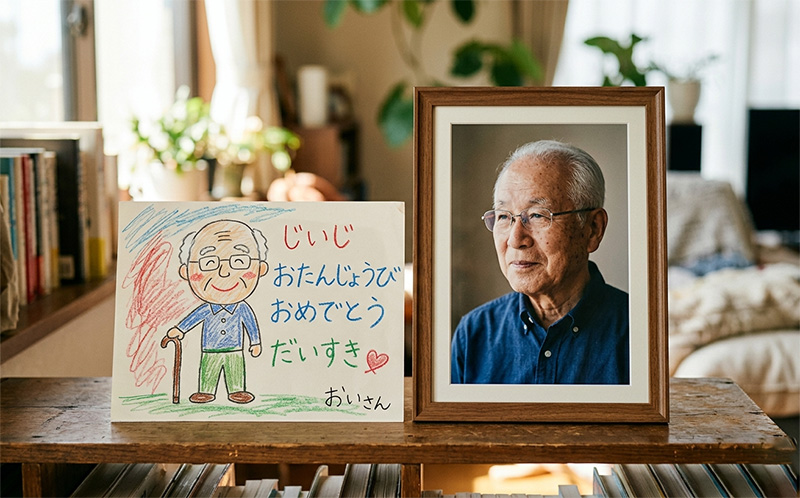 じいじ
おたんじょうび
おめでとう
だいすき
おいさん